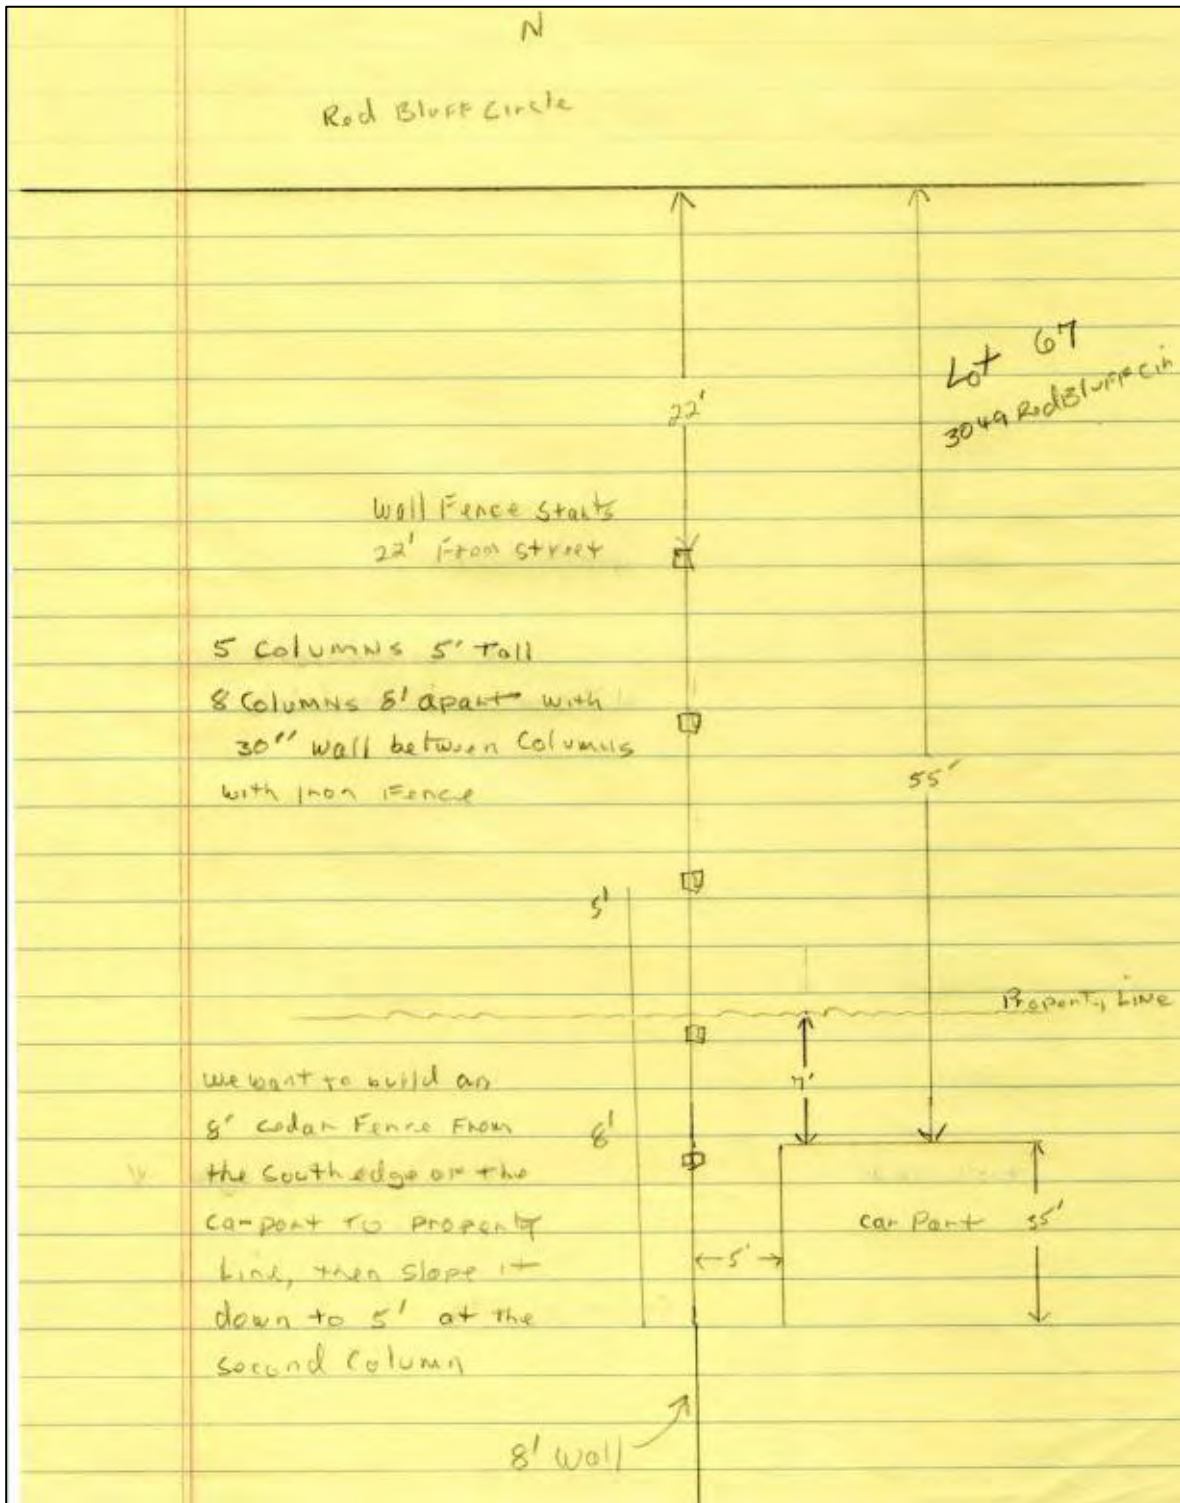 N
Red Bluff Circle
Lot 67
3049 Red Bluff Cir
22'
Wall Fence Starts
22' From Street
5 Columns 5' Tall
8 Columns 8' apart with
30" wall between Columns
with Iron Fence
55'
5'
Property Line
7'
We want to build an
8' cedar Fence From
the South edge of the
carport to property
Line, then slope it
down to 5' at the
second Column
8'
Car Port
35'
5'
8' Wall